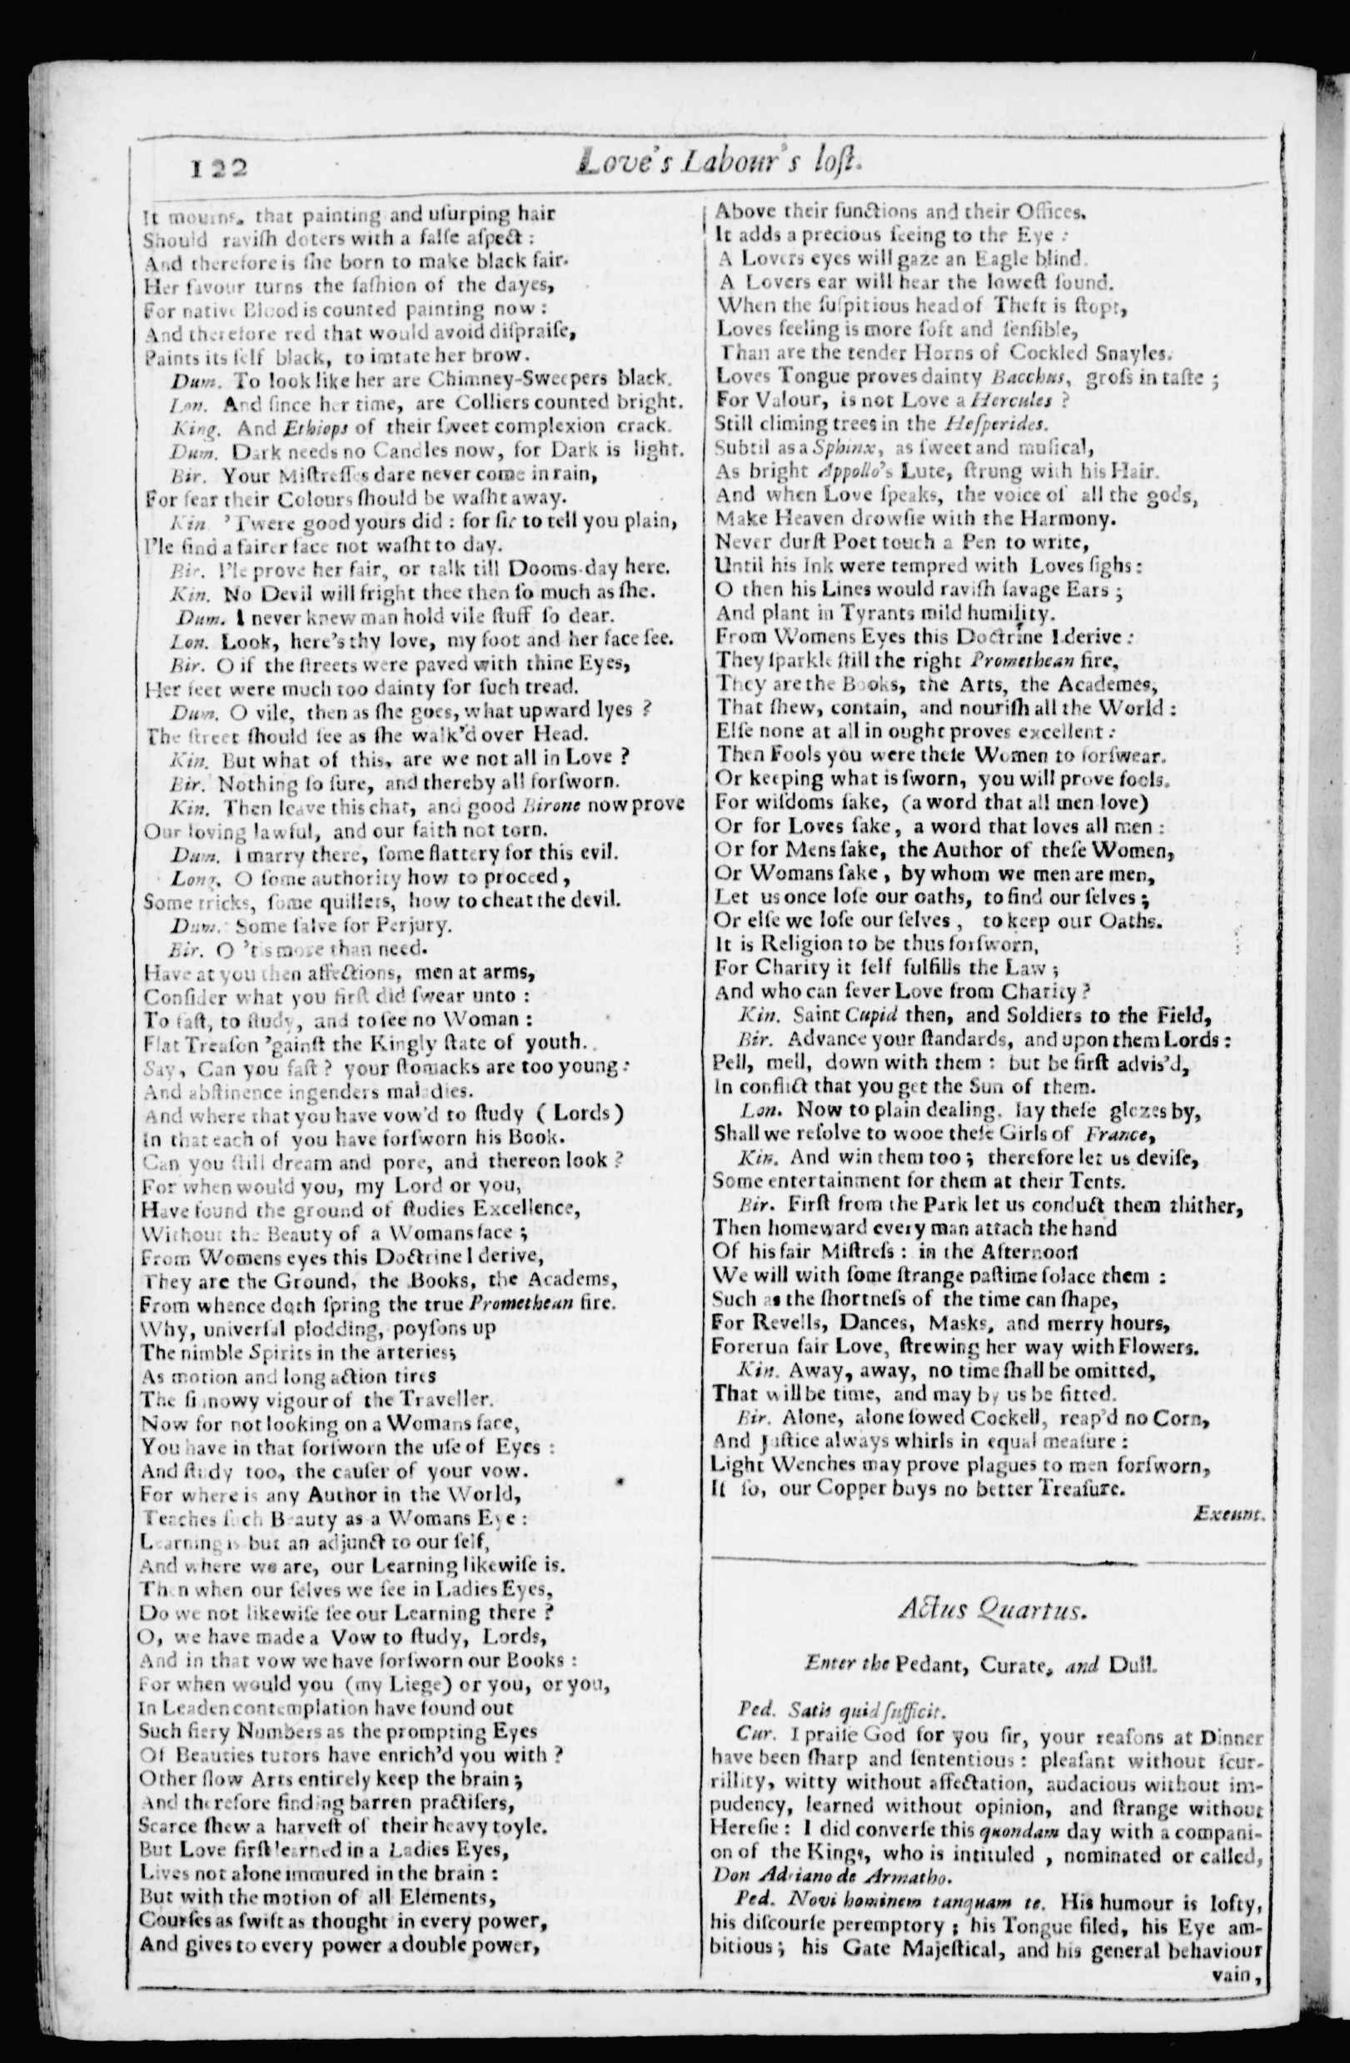 122
Love's Labour's loſt.
It mourns, that painting and uſurping hair
Should raviſh doters with a falſe aſpect:
And therefore is ſhe born to make black fair.
Her favour turns the faſhion of the dayes,
For native Blood is counted painting now:
And therefore red that would avoid diſpraiſe,
Paints its ſelf black, to imtate her brow.
Dum. To look like her are Chimney-Sweepers black.
Lon. And ſince her time, are Colliers counted bright.
King. And Ethiops of their ſweet complexion crack.
Dum. Dark needs no Candles now, for Dark is light.
Bir. Your Miſtreſſes dare never come in rain,
For fear their Colours ſhould be waſht away.
Kin 'Twere good yours did: for ſir to tell you plain,
I'le find a fairer face not waſht to day.
Bir. I'le prove her fair, or talk till Dooms-day here.
Kin. No Devil will fright thee then ſo much as ſhe.
Dum. I never knew man hold vile ſtuff ſo dear.
Lon. Look, here's thy love, my foot and her face ſee.
Bir. O if the ſtreets were paved with thine Eyes,
Her feet were much too dainty for ſuch tread.
Dum. O vile, then as ſhe goes, what upward lyes?
The ſtreet ſhould ſee as ſhe walk'd over Head.
Kin. But what of this, are we not all in Love?
Bir. Nothing ſo ſure, and thereby all forſworn.
Kin. Then leave this chat, and good Birone now prove
Our loving lawful, and our faith not torn.
Dum. I marry there, ſome flattery for this evil.
Long. O ſome authority how to proceed,
Some tricks, ſome quillets, how to cheat the devil.
Dum. Some ſalve for Perjury.
Bir. O 'tis more than need.
Have at you then affections, men at arms,
Conſider what you firſt did ſwear unto:
To faſt, to ſtudy, and to ſee no Woman:
Flat Treaſon 'gainſt the Kingly ſtate of youth.
Say, Can you faſt? your ſtomacks are too young:
And abſtinence ingenders maladies.
And where that you have vow'd to ſtudy (Lords)
In that each of you have forſworn his Book.
Can you ſtill dream and pore, and thereon look?
For when would you, my Lord or you,
Have found the ground of ſtudies Excellence,
Without the Beauty of a Womans face;
From Womens eyes this Doctrine I derive,
They are the Ground, the Books, the Academs,
From whence doth ſpring the true Promethean fire.
Why, univerſal plodding, poyſons up
The nimble Spirits in the arteries;
As motion and long action tires
The ſinnowy vigour of the Traveller.
Now for not looking on a Womans face,
You have in that forſworn the uſe of Eyes:
And ſtudy too, the cauſer of your vow.
For where is any Author in the World,
Teaches ſuch Beauty as a Womans Eye:
Learning is but an adjunct to our ſelf,
And where we are, our Learning likewiſe is.
Then when our ſelves we ſee in Ladies Eyes,
Do we not likewiſe ſee our Learning there?
O, we have made a Vow to ſtudy, Lords,
And in that vow we have forſworn our Books:
For when would you (my Liege) or you, or you,
In Leaden contemplation have found out
Such fiery Numbers as the prompting Eyes
Of Beauties tutors have enrich'd you with?
Other ſlow Arts entirely keep the brain;
And therefore finding barren practiſers,
Scarce ſhew a harveſt of their heavy toyle.
But Love firſt learned in a Ladies Eyes,
Lives not alone immured in the brain:
But with the motion of all Elements,
Courſes as ſwift as thought in every power,
And gives to every power a double power,
Above their functions and their Offices.
It adds a precious ſeeing to the Eye:
A Lovers eyes will gaze an Eagle blind.
A Lovers ear will hear the loweſt ſound.
When the ſuſpitious head of Theft is ſtopt,
Loves feeling is more ſoft and ſenſible,
Than are the tender Horns of Cockled Snayles.
Loves Tongue proves dainty Bacchus, groſs in taſte;
For Valour, is not Love a Hercules?
Still climing trees in the Heſperides.
Subtil as a Sphinx, as ſweet and muſical,
As bright Appollo's Lute, ſtrung with his Hair.
And when Love ſpeaks, the voice of all the gods,
Make Heaven drowſie with the Harmony.
Never durſt Poet touch a Pen to write,
Until his Ink were tempred with Loves ſighs:
O then his Lines would raviſh ſavage Ears;
And plant in Tyrants mild humility.
From Womens Eyes this Doctrine I derive:
They ſparkle ſtill the right Promethean fire,
They are the Books, the Arts, the Academes,
That ſhew, contain, and nouriſh all the World:
Elſe none at all in ought proves excellent:
Then Fools you were theſe Women to forſwear.
Or keeping what is ſworn, you will prove fools.
For wiſdoms ſake, (a word that all men love)
Or for Loves ſake, a word that loves all men:
Or for Mens ſake, the Author of theſe Women,
Or Womans ſake, by whom we men are men,
Let us once loſe our oaths, to find our ſelves;
Or elſe we loſe our ſelves, to keep our Oaths.
It is Religion to be thus forſworn,
For Charity it ſelf fulfills the Law;
And who can ſever Love from Charity?
Kin. Saint Cupid then, and Soldiers to the Field,
Bir. Advance your ſtandards, and upon them Lords:
Pell, mell, down with them: but be firſt advis'd,
In conflict that you get the Sun of them.
Lon. Now to plain dealing, lay theſe glozes by,
Shall we reſolve to wooe theſe Girls of France,
Kin. And win them too; therefore let us deviſe,
Some entertainment for them at their Tents.
Bir. Firſt from the Park let us conduct them thither,
Then homeward every man attach the hand
Of his fair Miſtreſs: in the Afternoon
We will with ſome ſtrange paſtime ſolace them:
Such as the ſhortneſs of the time can ſhape,
For Revells, Dances, Masks, and merry hours,
Forerun fair Love, ſtrewing her way with Flowers.
Kin. Away, away, no time ſhall be omitted,
That will be time, and may by us be fitted.
Bir. Alone, alone ſowed Cockell, reap'd no Corn,
And Juſtice always whirls in equal meaſure:
Light Wenches may prove plagues to men forſworn,
If ſo, our Copper buys no better Treaſure.
Exeunt.
Actus Quartus.
Enter the Pedant, Curate, and Dull.
Ped. Satis quid ſufficit.
Cur. I praiſe God for you ſir, your reaſons at Dinner
have been ſharp and ſententious: pleaſant without ſcur-
rillity, witty without affectation, audacious without im-
pudency, learned without opinion, and ſtrange without
Hereſie: I did converſe this quondam day with a compani-
on of the Kings, who is intituled, nominated or called,
Don Adriano de Armatho.
Ped. Novi hominem tanquam te. His humour is lofty,
his diſcourſe peremptory; his Tongue filed, his Eye am-
bitious; his Gate Majeſtical, and his general behaviour
vain,